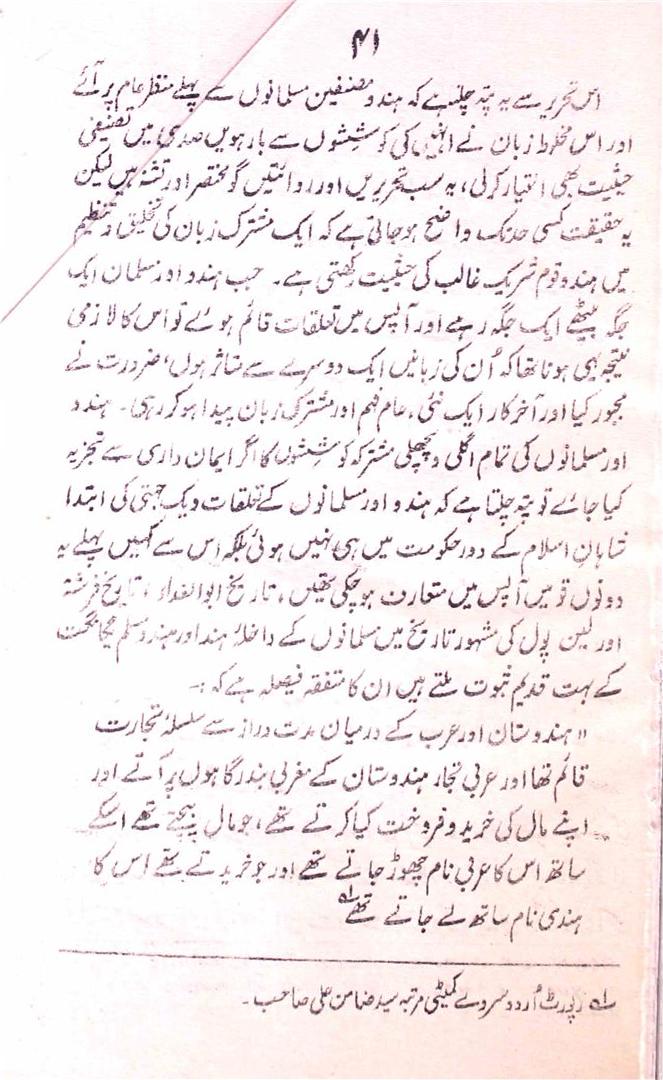 ۴۱
اس تحریر سے یہ پتہ چلتا ہے کہ ہندو مصنفین مسلمانوں سے پہلے منظر عام پر آئے
اور اس مخلوط زبان نے انہیں کی کوششوں سے بارہویں صدی میں تصنیفی
حیثیت بھی اختیار کرلی، یہ سب تحریریں اور روائتیں گو مختصر اور تشنہ ہیں لیکن
یہ حقیقت کسی حد تک واضح ہو جاتی ہے کہ ایک مشترک زبان کی تخلیق و تنظیم
میں ہندو قوم شریک غالب کی حیثیت رکھتی ہے۔ جب ہندو اور مسلمان ایک
جگہ بیٹھے ایک جگہ رہے اور آپس میں تعلقات قائم ہوئے تو اس کا لازمی
نتیجہ یہی ہونا تھا کہ اُن کی زبانیں ایک دوسرے سے متاثر ہوں، ضرورت نے
مجبور کیا اور آخر کار ایک نئی، عام فہم اور مشترک زبان پیدا ہو کر رہی۔ ہندو
اور مسلمانوں کی تمام اگلی و پچھلی مشترکہ کوششوں کا اگر ایمان داری سے تجزیہ
کیا جائے تو پتہ چلتا ہے کہ ہندو اور مسلمانوں کے تعلقات و یک جہتی کی ابتدا
شاہانِ اسلام کے دور حکومت میں ہی نہیں ہوئی بلکہ اس سے کہیں پہلے یہ
دونوں قومیں آپس میں متعارف ہو چکی تھیں، تاریخ ابوالفداء، تاریخ فرشتہ
اور لین پول کی مشہور تاریخ میں مسلمانوں کے داخلۂ ہند اور ہندو مسلم یگانگت
کے بہت قدیم ثبوت ملتے ہیں ان کا متفقہ فیصلہ ہے کہ :۔
"ہندوستان اور عرب کے درمیان مدت دراز سے سلسلۂ تجارت
قائم تھا اور عربی تجار ہندوستان کے مغربی بندرگاہوں پر آتے اور
اپنے مال کی خرید و فروخت کیا کرتے تھے، جو مال بیچتے تھے اسکے
ساتھ اس کا عربی نام چھوڑ جاتے تھے اور جو خریدتے تھے اس کا
ہندی نام ساتھ لے جاتے تھے ؎۱
؎۱ رپورٹ اُردو سروے کمیٹی مرتبہ سید ضامن علی صاحب۔